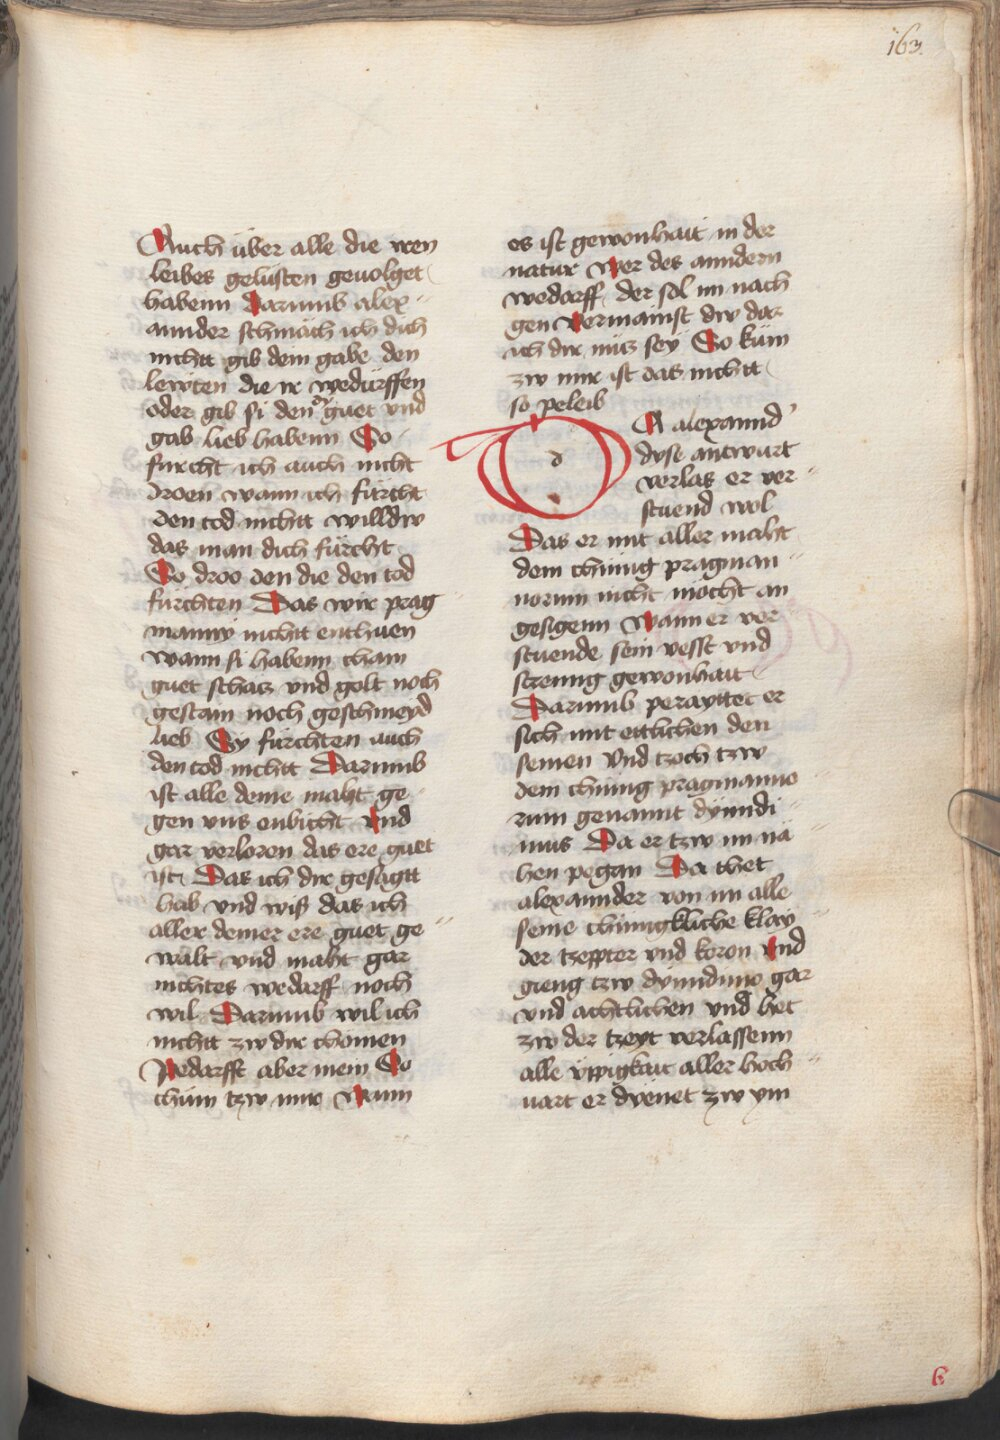 163.
Auch über alle die iren
leibes gelüsten geuolget
habenn Darumb alex-
annder schmäch ich dich
nichtt gib dem gabe den
lewten die ir wedürffen
oder gib si den guet vnd
gab lieb habenn So
fürcht ich auch nicht
droen wann ich fürcht
den tod nichtt willdw
das man dich fürcht
So droo den die den tod
fürchten Das wir prag
manny nichtt enthuen
wann si habenn chain
guet schacz vnd golt noch
gestain noch geschmeyd
lieb Sy fürchten auch
den tod nichtt Darumb
ist alle deine maht ge-
gen vns enbicht vnd
gar verloren das ere guet
ist Das ich dir gesagtt
hab vnd wiß das ich
aller deiner ere guet ge-
walt vnd maht gar
nichtes wedarff noch
wil Darumb wil ich
nichtt zw dir chomen
Wedarfft aber mein So
chüm tzw mir Wann
es ist gewonhait in der
natur Wer des anndern
wedarff der sol im nach
gen Vermainst dw das
ich dir nüz sey So küm
zw mir ist das nichtt
so peleib
d
A alexannd'
dyse antwurt
verlas er ver-
stuend wol
Das er mit aller maht
dem chünig pragman-
norum nicht möcht an
gesigenn Wann er ver
stuende sein vesst vnd
streung gewonhait
Darumb perayttet er
sich mit ettlichen den
seinen Vnd tzoch tzw
dem chünig pragmanno
rum genannt dyindi-
mus Da er tzw im nä
hen pegan Da thet
alexannder von im alle
seine chünigkliche klay
der tzeppter vnd koron Vnd
gieng tzw dyindimo gar
vnd achtlichen vnd het
zw der tzeyt verlassenn
alle üppigkait aller hoch
uart er dyenet zw ym